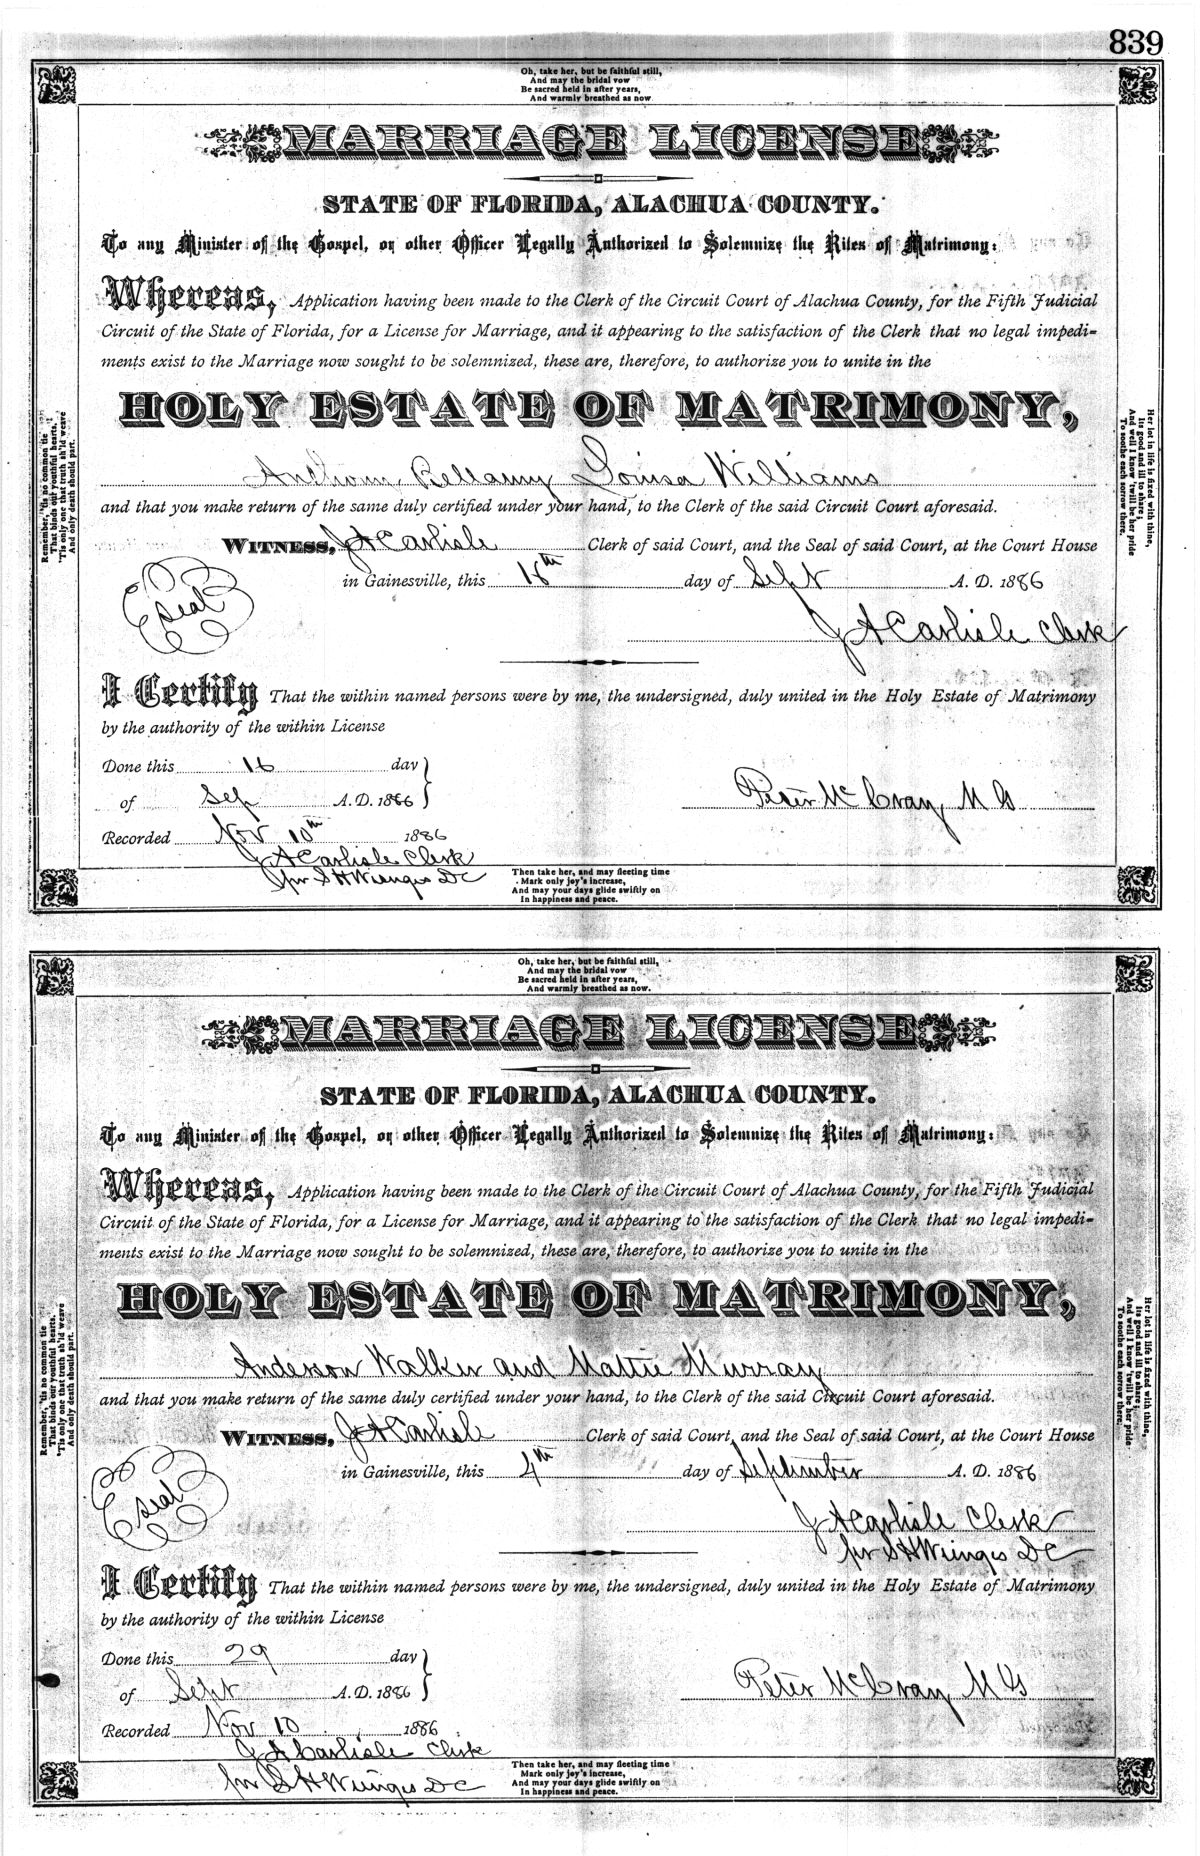 839
Oh, take her, but be faithful still,
And may the bridal vow
Be sacred held in after years,
And warmly breathed as now
MARRIAGE LICENSE
STATE OF FLORIDA, ALACHUA COUNTY.
To any Minister of the Gospel, or other Officer Legally Authorized to Solemnize the Rites of Matrimony:
Whereas, Application having been made to the Clerk of the Circuit Court of Alachua County, for the Fifth Judicial
Circuit of the State of Florida, for a License for Marriage, and it appearing to the satisfaction of the Clerk that no legal impedi-
ments exist to the Marriage now sought to be solemnized, these are, therefore, to authorize you to unite in the
HOLY ESTATE OF MATRIMONY,
Anthony Bellamy Louisa Williams
and that you make return of the same duly certified under your hand, to the Clerk of the said Circuit Court aforesaid.
WITNESS, J A Carlisle Clerk of said Court, and the Seal of said Court, at the Court House
in Gainesville, this day of Sept A. D. 1886
Seal
J A Carlisle Clerk
I Certify That the within named persons were by me, the undersigned, duly united in the Holy Estate of Matrimony
by the authority of the within License
Done this 16 day
of Sep A.D. 1886
Peter McCray, M G
Recorded Nov 10th 1886
J A Carlisle Clerk
per S H Wienges D C
Then take her, and may fleeting time
Mark only joy's increase,
And may your days glide swiftly on
In happiness and peace.
Remember, 'tis no common tie
That binds our youthful hearts,
'Tis only one that truth sh'ld weave
And only death should part.
Her lot in life is fixed with thine,
Its good and ill to share;
And well I know 'twill be her pride
To soothe each sorrow there.
Oh, take her, but be faithful still,
And may the bridal vow
Be sacred held in after years,
And warmly breathed as now.
MARRIAGE LICENSE
STATE OF FLORIDA, ALACHUA COUNTY.
To any Minister of the Gospel, or other Officer Legally Authorized to Solemnize the Rites of Matrimony:
Whereas, Application having been made to the Clerk of the Circuit Court of Alachua County, for the Fifth Judicial
Circuit of the State of Florida, for a License for Marriage, and it appearing to the satisfaction of the Clerk that no legal impedi-
ments exist to the Marriage now sought to be solemnized, these are, therefore, to authorize you to unite in the
HOLY ESTATE OF MATRIMONY,
Anderson Walker and Mattie Murray
and that you make return of the same duly certified under your hand, to the Clerk of the said Circuit Court aforesaid.
WITNESS, J A Carlisle Clerk of said Court, and the Seal of said Court, at the Court House
in Gainesville, this 4th day of September A. D. 1886
Seal
J A Carlisle Clerk
per S H Wienges D C
I Certify That the within named persons were by me, the undersigned, duly united in the Holy Estate of Matrimony
by the authority of the within License
Done this 29 day
of Sept A.D. 1886
Peter McCray, M G
Recorded Nov 10 1886
J A Carlisle Clerk
per S H Wienges D C
Then take her, and may fleeting time
Mark only joy's increase,
And may your days glide swiftly on
In happiness and peace.
Remember, 'tis no common tie
That binds our youthful hearts,
'Tis only one that truth sh'ld weave
And only death should part.
Her lot in life is fixed with thine,
Its good and ill to share;
And well I know 'twill be her pride
To soothe each sorrow there.